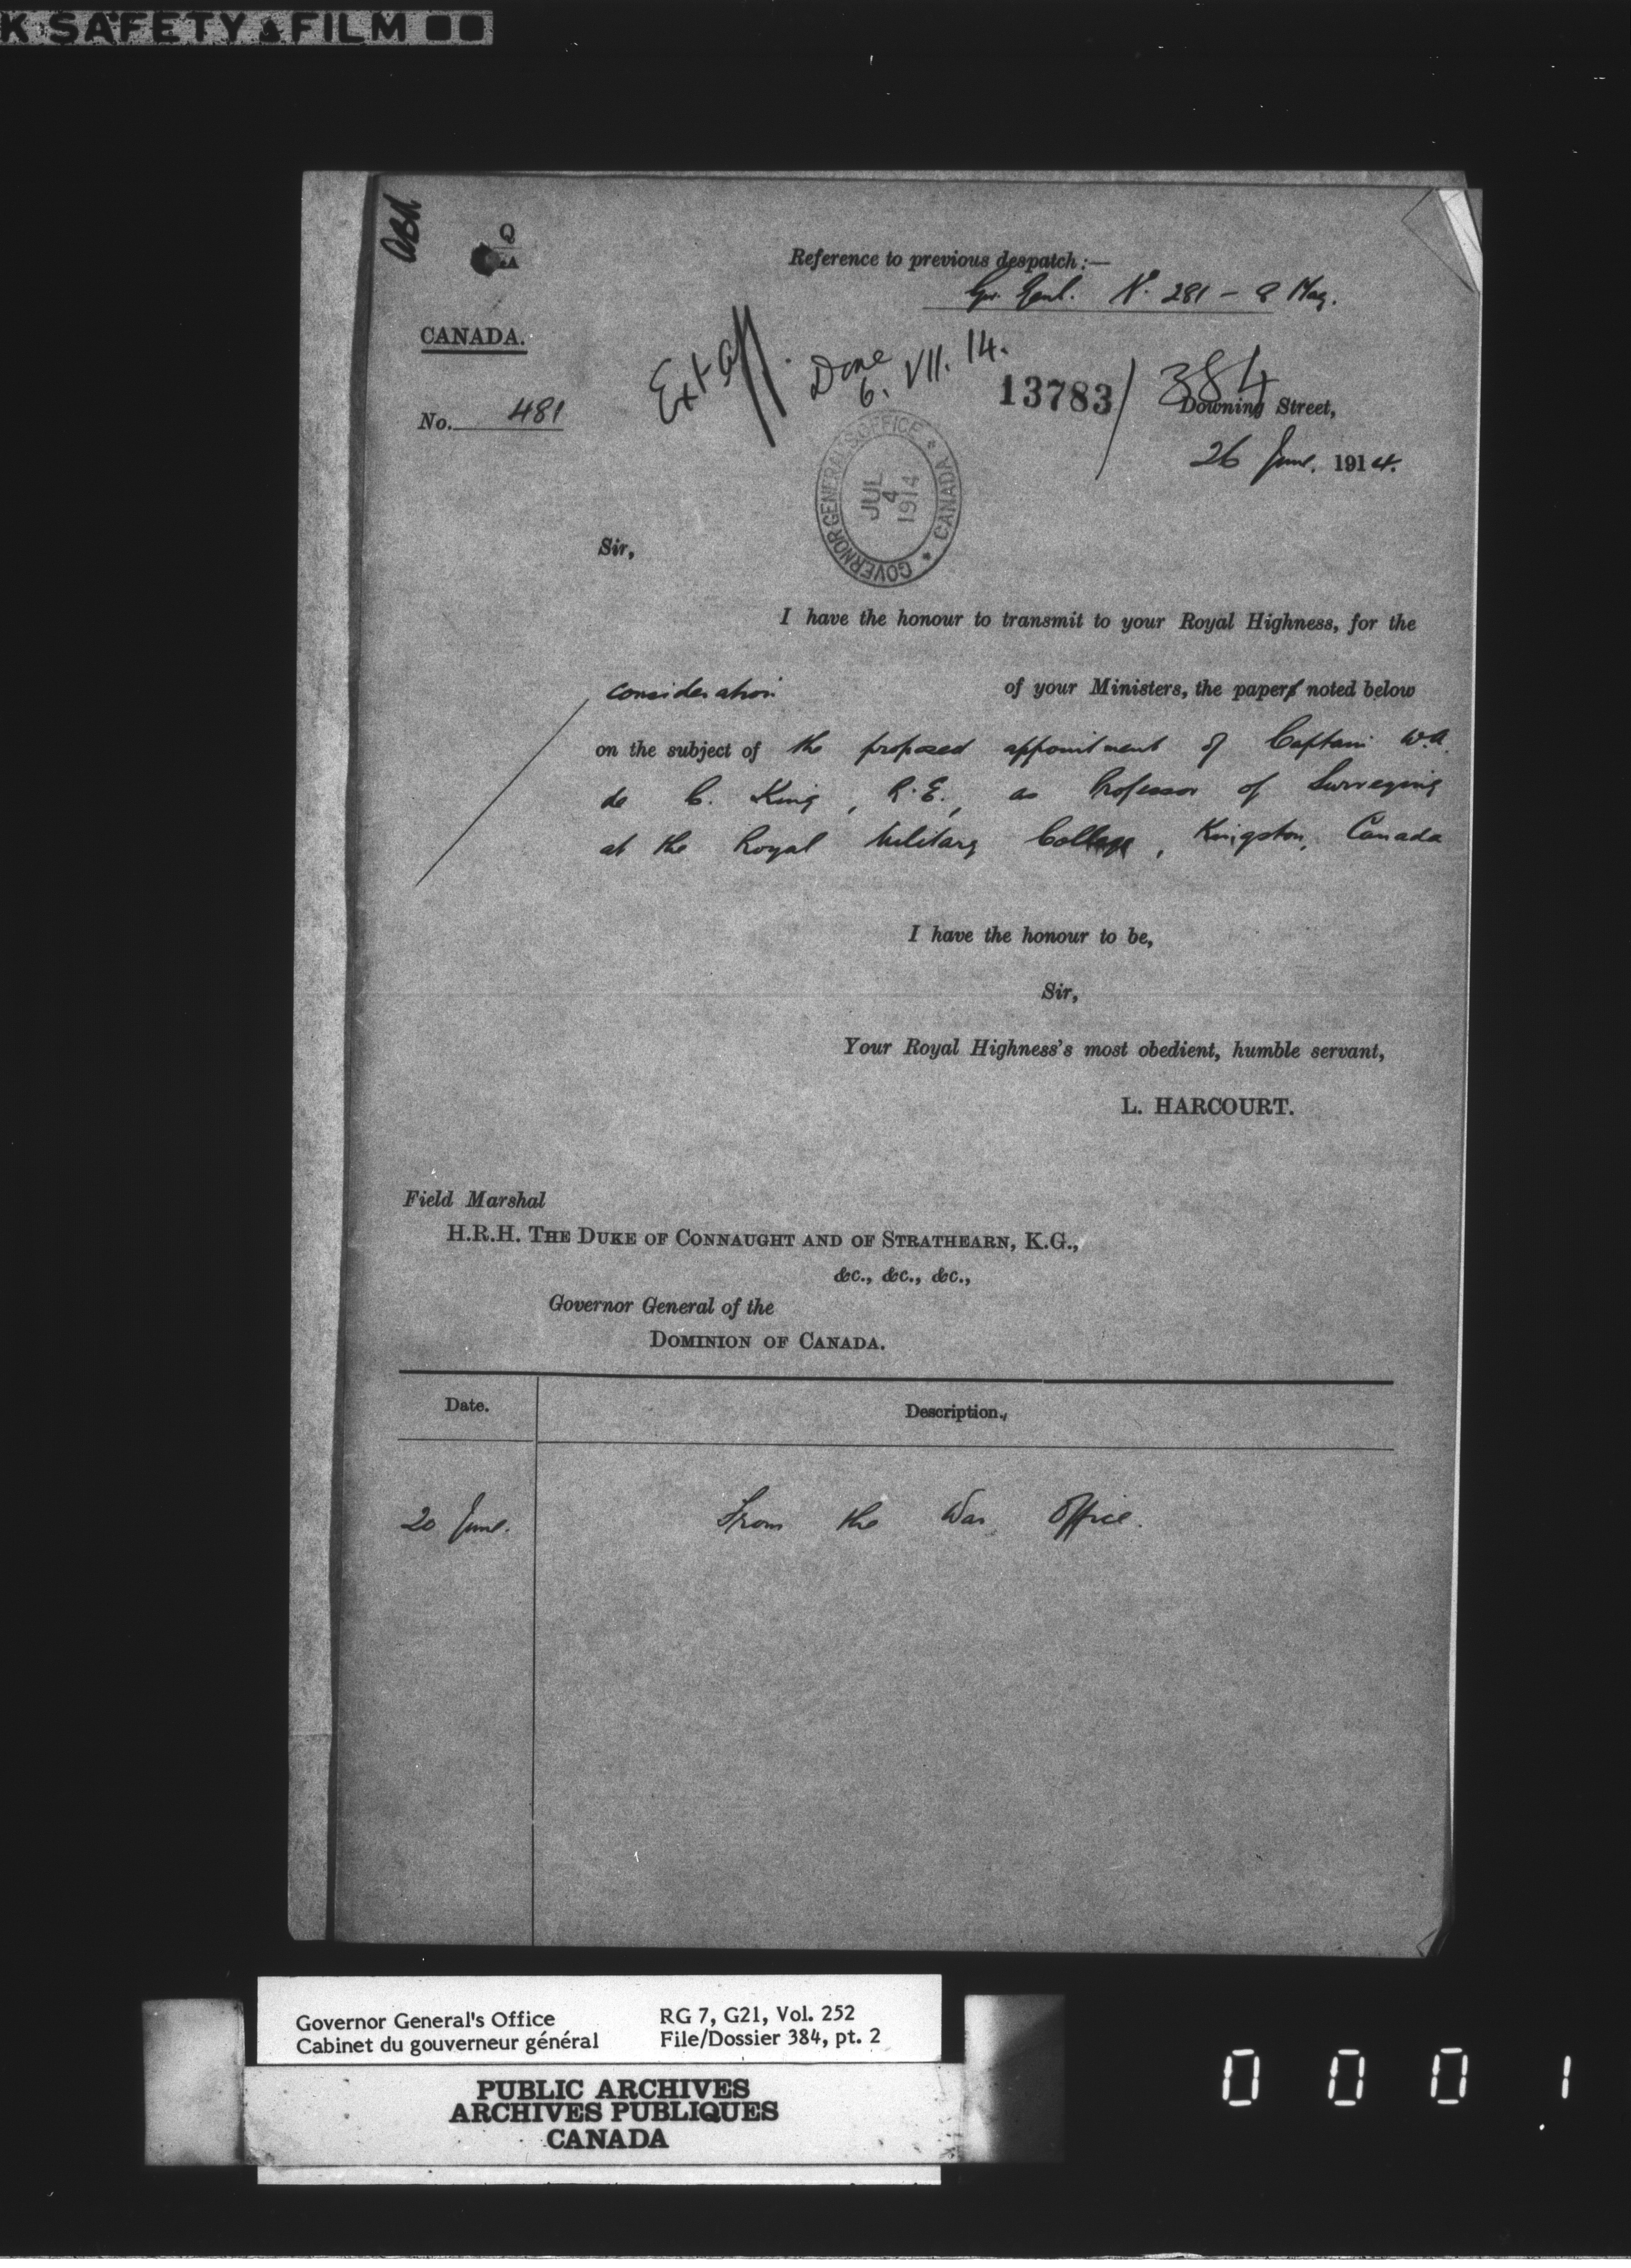 K SAFETY FILM
Q
Reference to previous despatch:—
Gov. Genl. No. 281 - 8 May.
CANADA.
Ext Aff.
Done
6. VII. 14.
13783/384
No. 481
Downing Street,
26 June, 1914.
GOVERNOR GENERAL'S OFFICE * CANADA *
JUL
4
1914
Sir,
I have the honour to transmit to your Royal Highness, for the
consideration of your Ministers, the paper noted below
on the subject of the proposed appointment of Captain W.A.
de C. King, R.E., as Professor of Surveying
at the Royal Military College, Kingston, Canada
I have the honour to be,
Sir,
Your Royal Highness's most obedient, humble servant,
L. HARCOURT.
Field Marshal
H.R.H. THE DUKE OF CONNAUGHT AND OF STRATHEARN, K.G.,
&c., &c., &c.,
Governor General of the
DOMINION OF CANADA.
Date. Description.
20 June. From the War Office.
Governor General's Office RG 7, G21, Vol. 252
Cabinet du gouverneur général File/Dossier 384, pt. 2
PUBLIC ARCHIVES
ARCHIVES PUBLIQUES
CANADA
0001